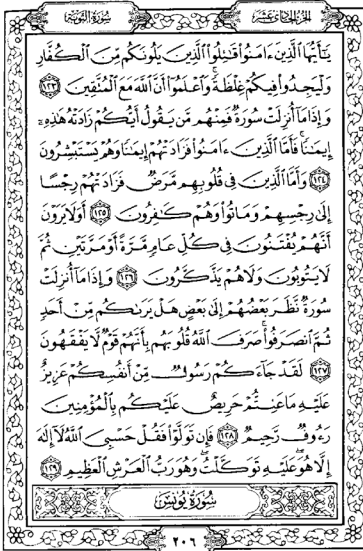 الجزء الحادي عشر
سورة التوبة
يَٰٓأَيُّهَا ٱلَّذِينَ ءَامَنُوا۟ قَٰتِلُوا۟ ٱلَّذِينَ يَلُونَكُم مِّنَ ٱلْكُفَّارِ
وَلْيَجِدُوا۟ فِيكُمْ غِلْظَةً ۚ وَٱعْلَمُوٓا۟ أَنَّ ٱللَّهَ مَعَ ٱلْمُتَّقِينَ ١٢٣
وَإِذَا مَآ أُنزِلَتْ سُورَةٌ فَمِنْهُم مَّن يَقُولُ أَيُّكُمْ زَادَتْهُ هَٰذِهِۦٓ
إِيمَٰنًا ۚ فَأَمَّا ٱلَّذِينَ ءَامَنُوا۟ فَزَادَتْهُمْ إِيمَٰنًا وَهُمْ يَسْتَبْشِرُونَ
١٢٤ وَأَمَّا ٱلَّذِينَ فِى قُلُوبِهِم مَّرَضٌ فَزَادَتْهُمْ رِجْسًا
إِلَىٰ رِجْسِهِمْ وَمَاتُوا۟ وَهُمْ كَٰفِرُونَ ١٢٥ أَوَلَا يَرَوْنَ
أَنَّهُمْ يُفْتَنُونَ فِى كُلِّ عَامٍ مَّرَّةً أَوْ مَرَّتَيْنِ ثُمَّ
لَا يَتُوبُونَ وَلَا هُمْ يَذَّكَّرُونَ ١٢٦ وَإِذَا مَآ أُنزِلَتْ
سُورَةٌ نَّظَرَ بَعْضُهُمْ إِلَىٰ بَعْضٍ هَلْ يَرَىٰكُم مِّنْ أَحَدٍ
ثُمَّ ٱنصَرَفُوا۟ ۚ صَرَفَ ٱللَّهُ قُلُوبَهُم بِأَنَّهُمْ قَوْمٌ لَّا يَفْقَهُونَ
١٢٧ لَقَدْ جَآءَكُمْ رَسُولٌ مِّنْ أَنفُسِكُمْ عَزِيزٌ
عَلَيْهِ مَا عَنِتُّمْ حَرِيصٌ عَلَيْكُم بِٱلْمُؤْمِنِينَ
رَءُوفٌ رَّحِيمٌ ١٢٨ فَإِن تَوَلَّوْا۟ فَقُلْ حَسْبِىَ ٱللَّهُ لَآ إِلَٰهَ
إِلَّا هُوَ ۖ عَلَيْهِ تَوَكَّلْتُ ۖ وَهُوَ رَبُّ ٱلْعَرْشِ ٱلْعَظِيمِ ١٢٩
سورة يونس
٢٠٦